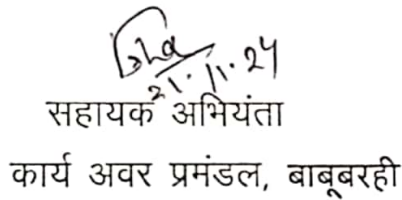 21.11.24
सहायक अभियंता
कार्य अवर प्रमंडल, बाबूबरही